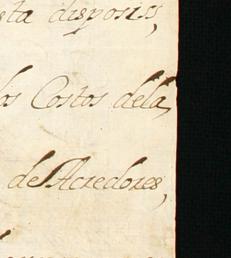 sta disposiço,
los Costos dela
de Acredores,